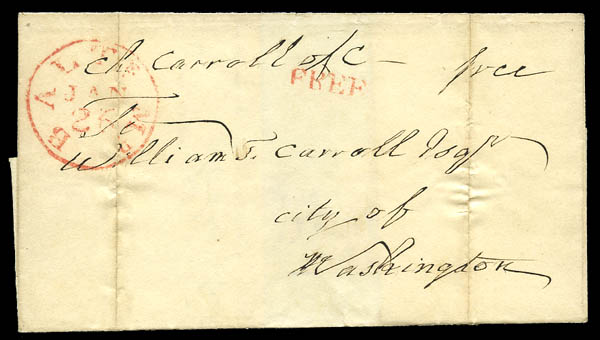 Ch Carroll of C — free
FREE
BALT MD
JAN
To
William T. Carroll Esqr
city of
Washington